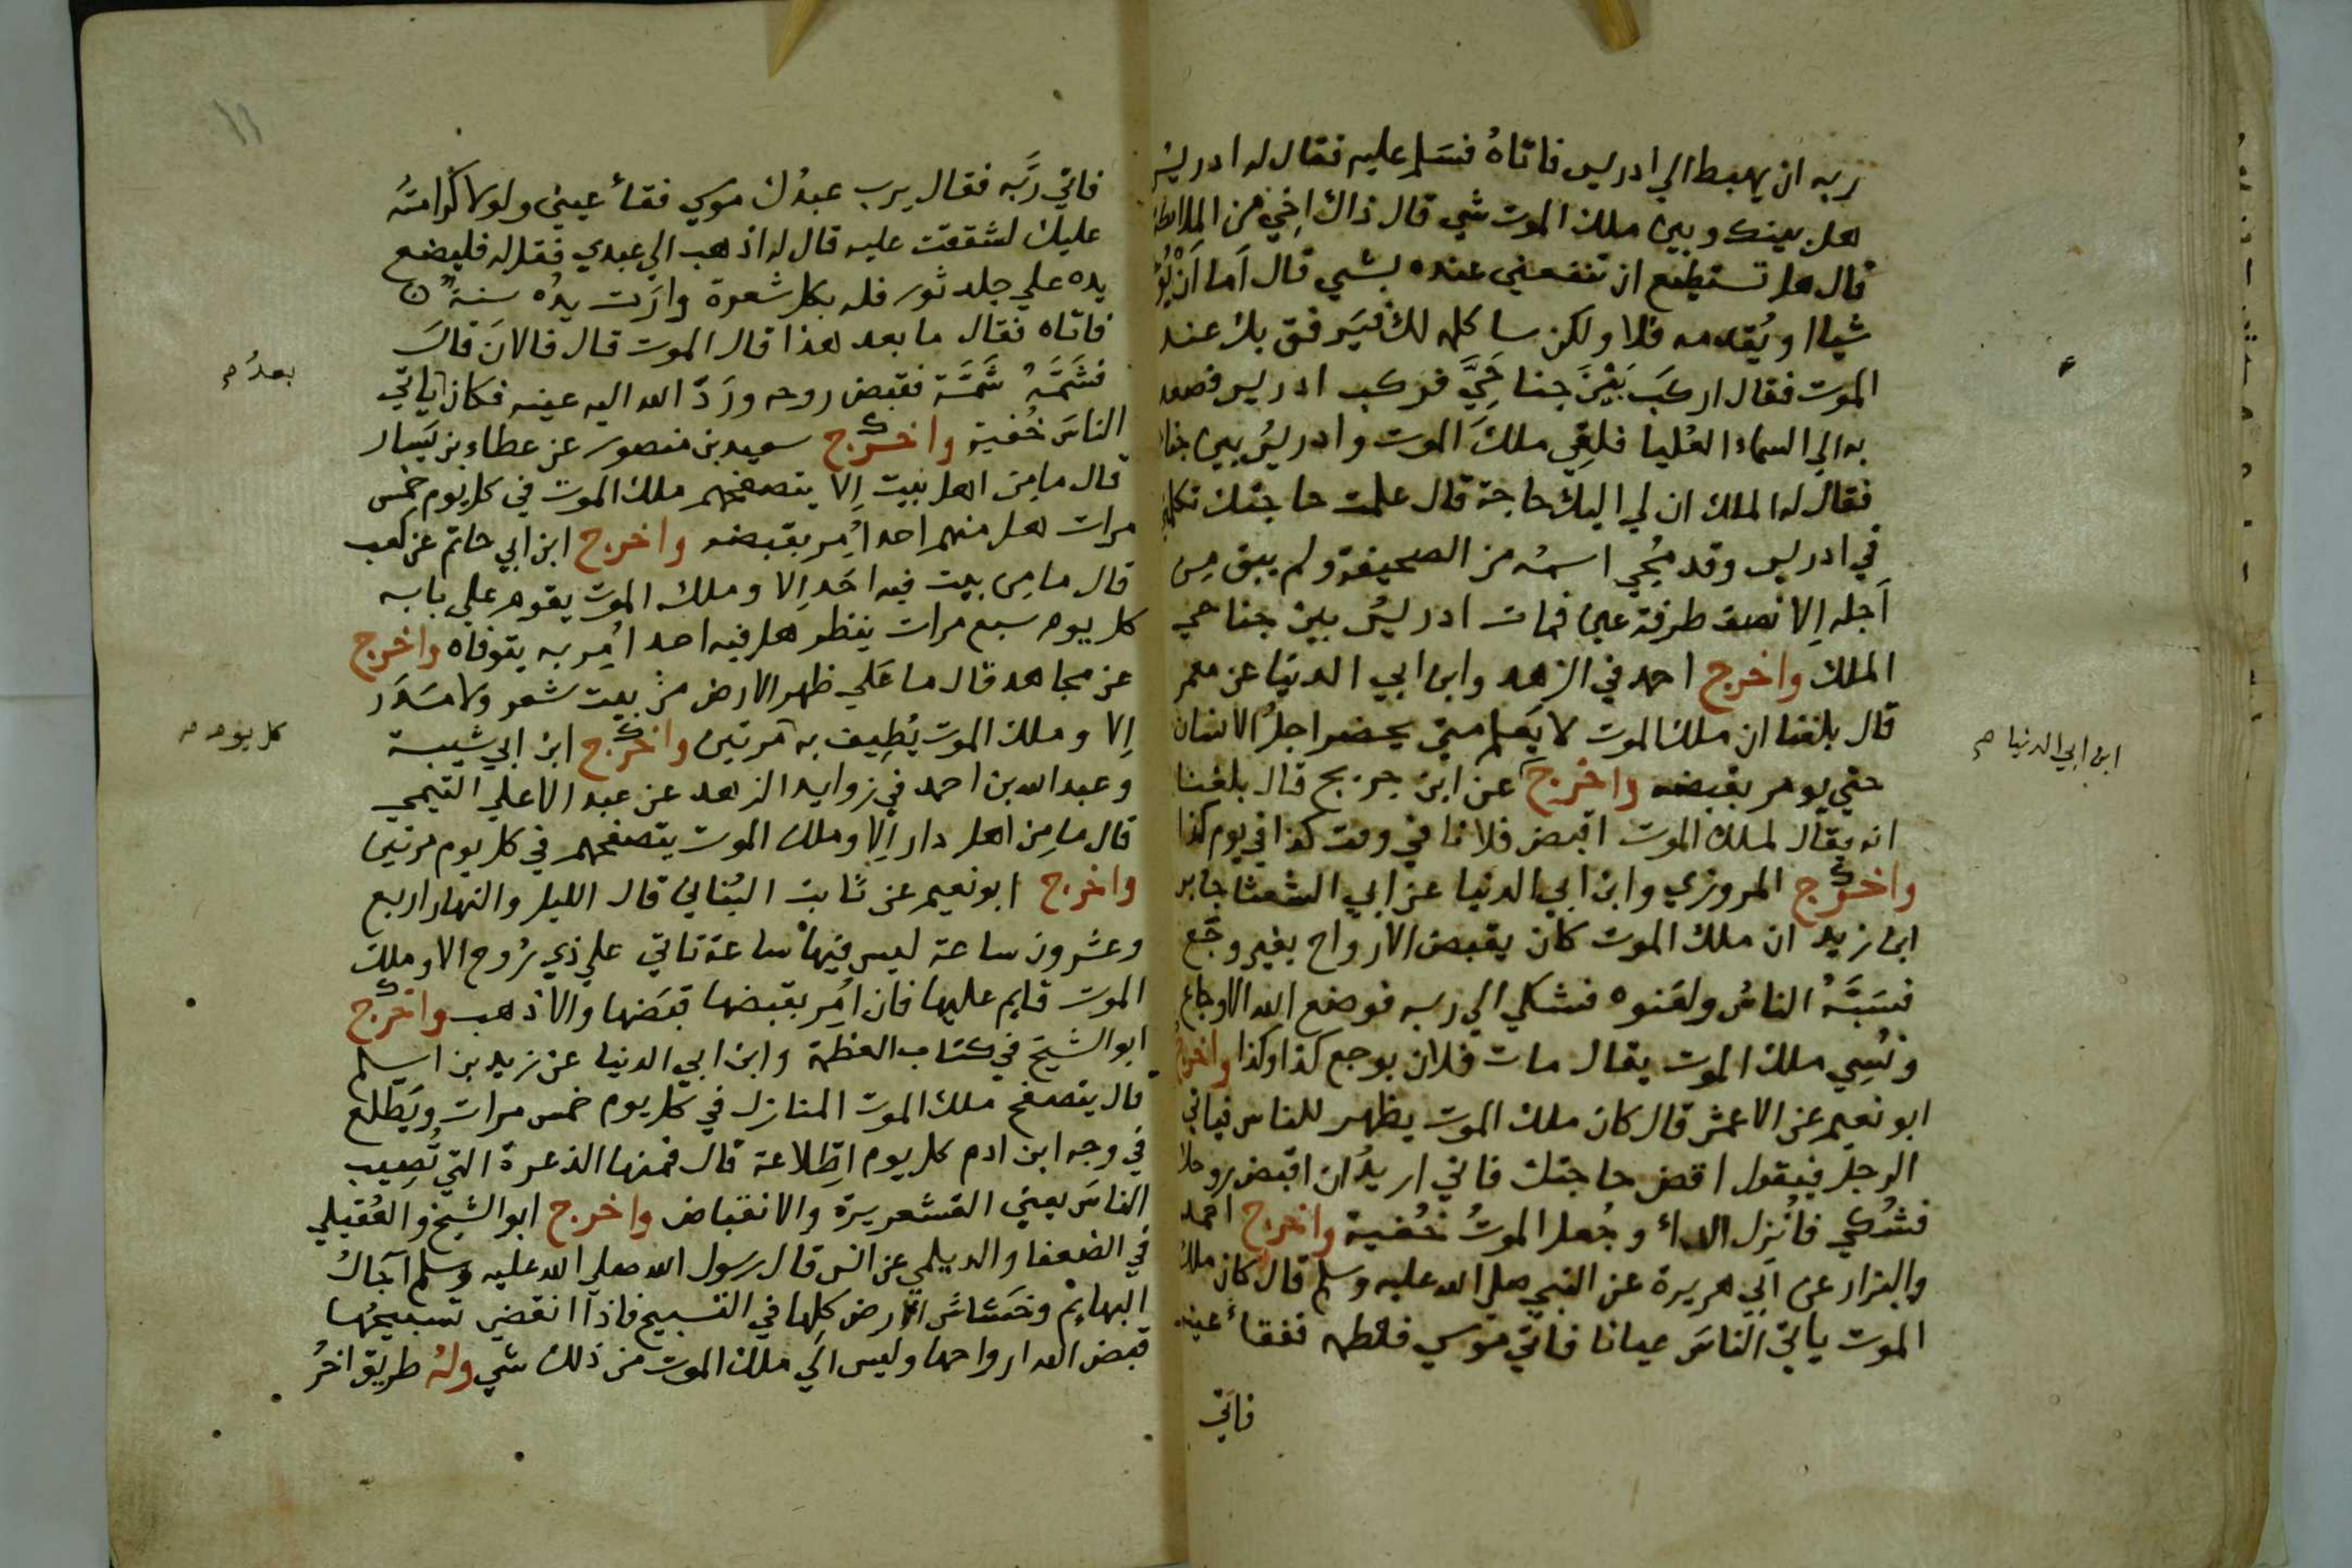 ربه ان يهبط الي ادريس فاتاهُ فسَلم عليه فقال له ادريس
هل بينك وبين ملك الموت شي قال ذاك اخِي من الملائكة
قال هل تستطيع ان تنفعني عنده بشي قال اَما اَنْ يُؤخر
شياا او يُقدمه فلا ولكن ساكلمه لك فيَرفق بك عند
الموت فقال اركبَ بَيْنَ جناحَيَّ فركب ادريس فصعد
به الي السماء العُليا فلقِي ملكَ الموت وادريسُ بين جناحيه
فقال له الملك ان لي اليك حاجة قال علمت حاجتك تكلمني
في ادريس وقد مُحِي اسمُه من الصحيفة ولم يبق مِن
اَجله اِلا نصف طرفة عين فمات ادريسُ بين جناحي
الملك واخرج احمد في الزهد وابن ابي الدنيا عن معمر
قال بلغنا ان ملك الموت لا يَعلم متي يحضر اجلُ الانسان
حتي يومر بقبضه واخرج عن ابن جريج قال بلغنا
ابن ابي الدنيا صح
انه يقال لملك الموت اقبض فلانا في وقت كذا في يوم كذا
واخرج المروزي وابن ابي الدنيا عن ابي الشعثا جابر
ابن زيد ان ملك الموت كان يقبض الارواح بغير وجَع
فسَبَّهُ الناسُ ولعَنوه فشكي الي ربه فوضع الله الاوجاع
ونُسِي ملك الموت يقال مات فلان بوجع كذا وكذا واخرج
ابو نعيم عن الاعمش قال كان ملك الموت يظهر للناس فياتي
الرجل فيقول اقض حاجتك فاني اريدُ ان اقبض روحك
فشُكي فاُنزل الداُ وجُعل الموتُ خُفية واخرج احمد
والبزار عن ابَي هريرة عن النبي صلي الله عليه وسلم قال كان ملك
الموت ياتي الناسَ عيانا فاتي موسي فلطمه ففقاَ عينه
فاتي
١١
فاتي ربَّه فقال يرب عبدُك موسي فقاَ عيني ولولا كرامتُه
عليك لشققت عليه قال له اذهب الي عبدي فقل له فليضع
يده علي جلد ثور فله بكل شعرة وارَت يدُه سنةٌ
فاتاه فقال ما بعد هذا قال الموت قال فالانَ قالَ
فشَمَّهُ شَمَّة فقبض روحه ورَدَّ الله اليه عينه فكان ياتي
بعدُ صح
الناسَ خُفية واخرج سعيد بن منصور عن عطاء بن يَسار
قال ما مِن اهل بيت اِلا يتصفحهم ملك الموت في كل يوم خمس
مرات هل منهم احد اُمِر بقبضه واخرج ابن ابي حاتم عن كعب
قال ما مِن بيت فيه احَد اِلا وملك الموت يقوم علي بابه
كل يوم سبع مرات ينظر هل فيه احد اُمِر به يتوفاه واخرج
عن مجاهد قال ما عَلي ظهر الارض من بيت شعر ولا مَدَر
اِلا وملك الموت يُطِيف به مرتين واخرج ابن ابي شيبة
كل يوم صح
وعبد الله بن احمد في زوايد الزهد عن عبد الاعلي التيمي
قال ما مِن اهل دار اِلا وملك الموت يتصفحهم في كل يوم مرتين
واخرج ابو نعيم عن ثابت البُناني قال الليل والنهار اربع
وعشرون ساعة ليس فيها ساعة تاتي علي ذي رُوح الا وملك
الموت قايم عليها فان اُمِر بقبضها قبَضها والا ذهب واخرج
ابو الشيخ في كتاب العظمة وابن ابي الدنيا عن زيد بن اسلم
قال يتصفح ملك الموت المنازل في كل يوم خمس مرات ويَطلع
في وجه ابن ادم كل يوم اطِّلاعة قال فمنها الذعرة التي تُصِيب
الناسَ يعني القشعريرة والانقباض واخرج ابو الشيخ والعُقيلي
في الضعفا والديلمي عن انس قال رسول الله صلي الله عليه وسلم آجالُ
البهايم وخَشاش الارض كلها في التسبيح فاذا انقضي تسبيحُها
قبض الله ارواحها وليس الَي ملك الموت من ذلك شي ولهُ طريق اخرُ